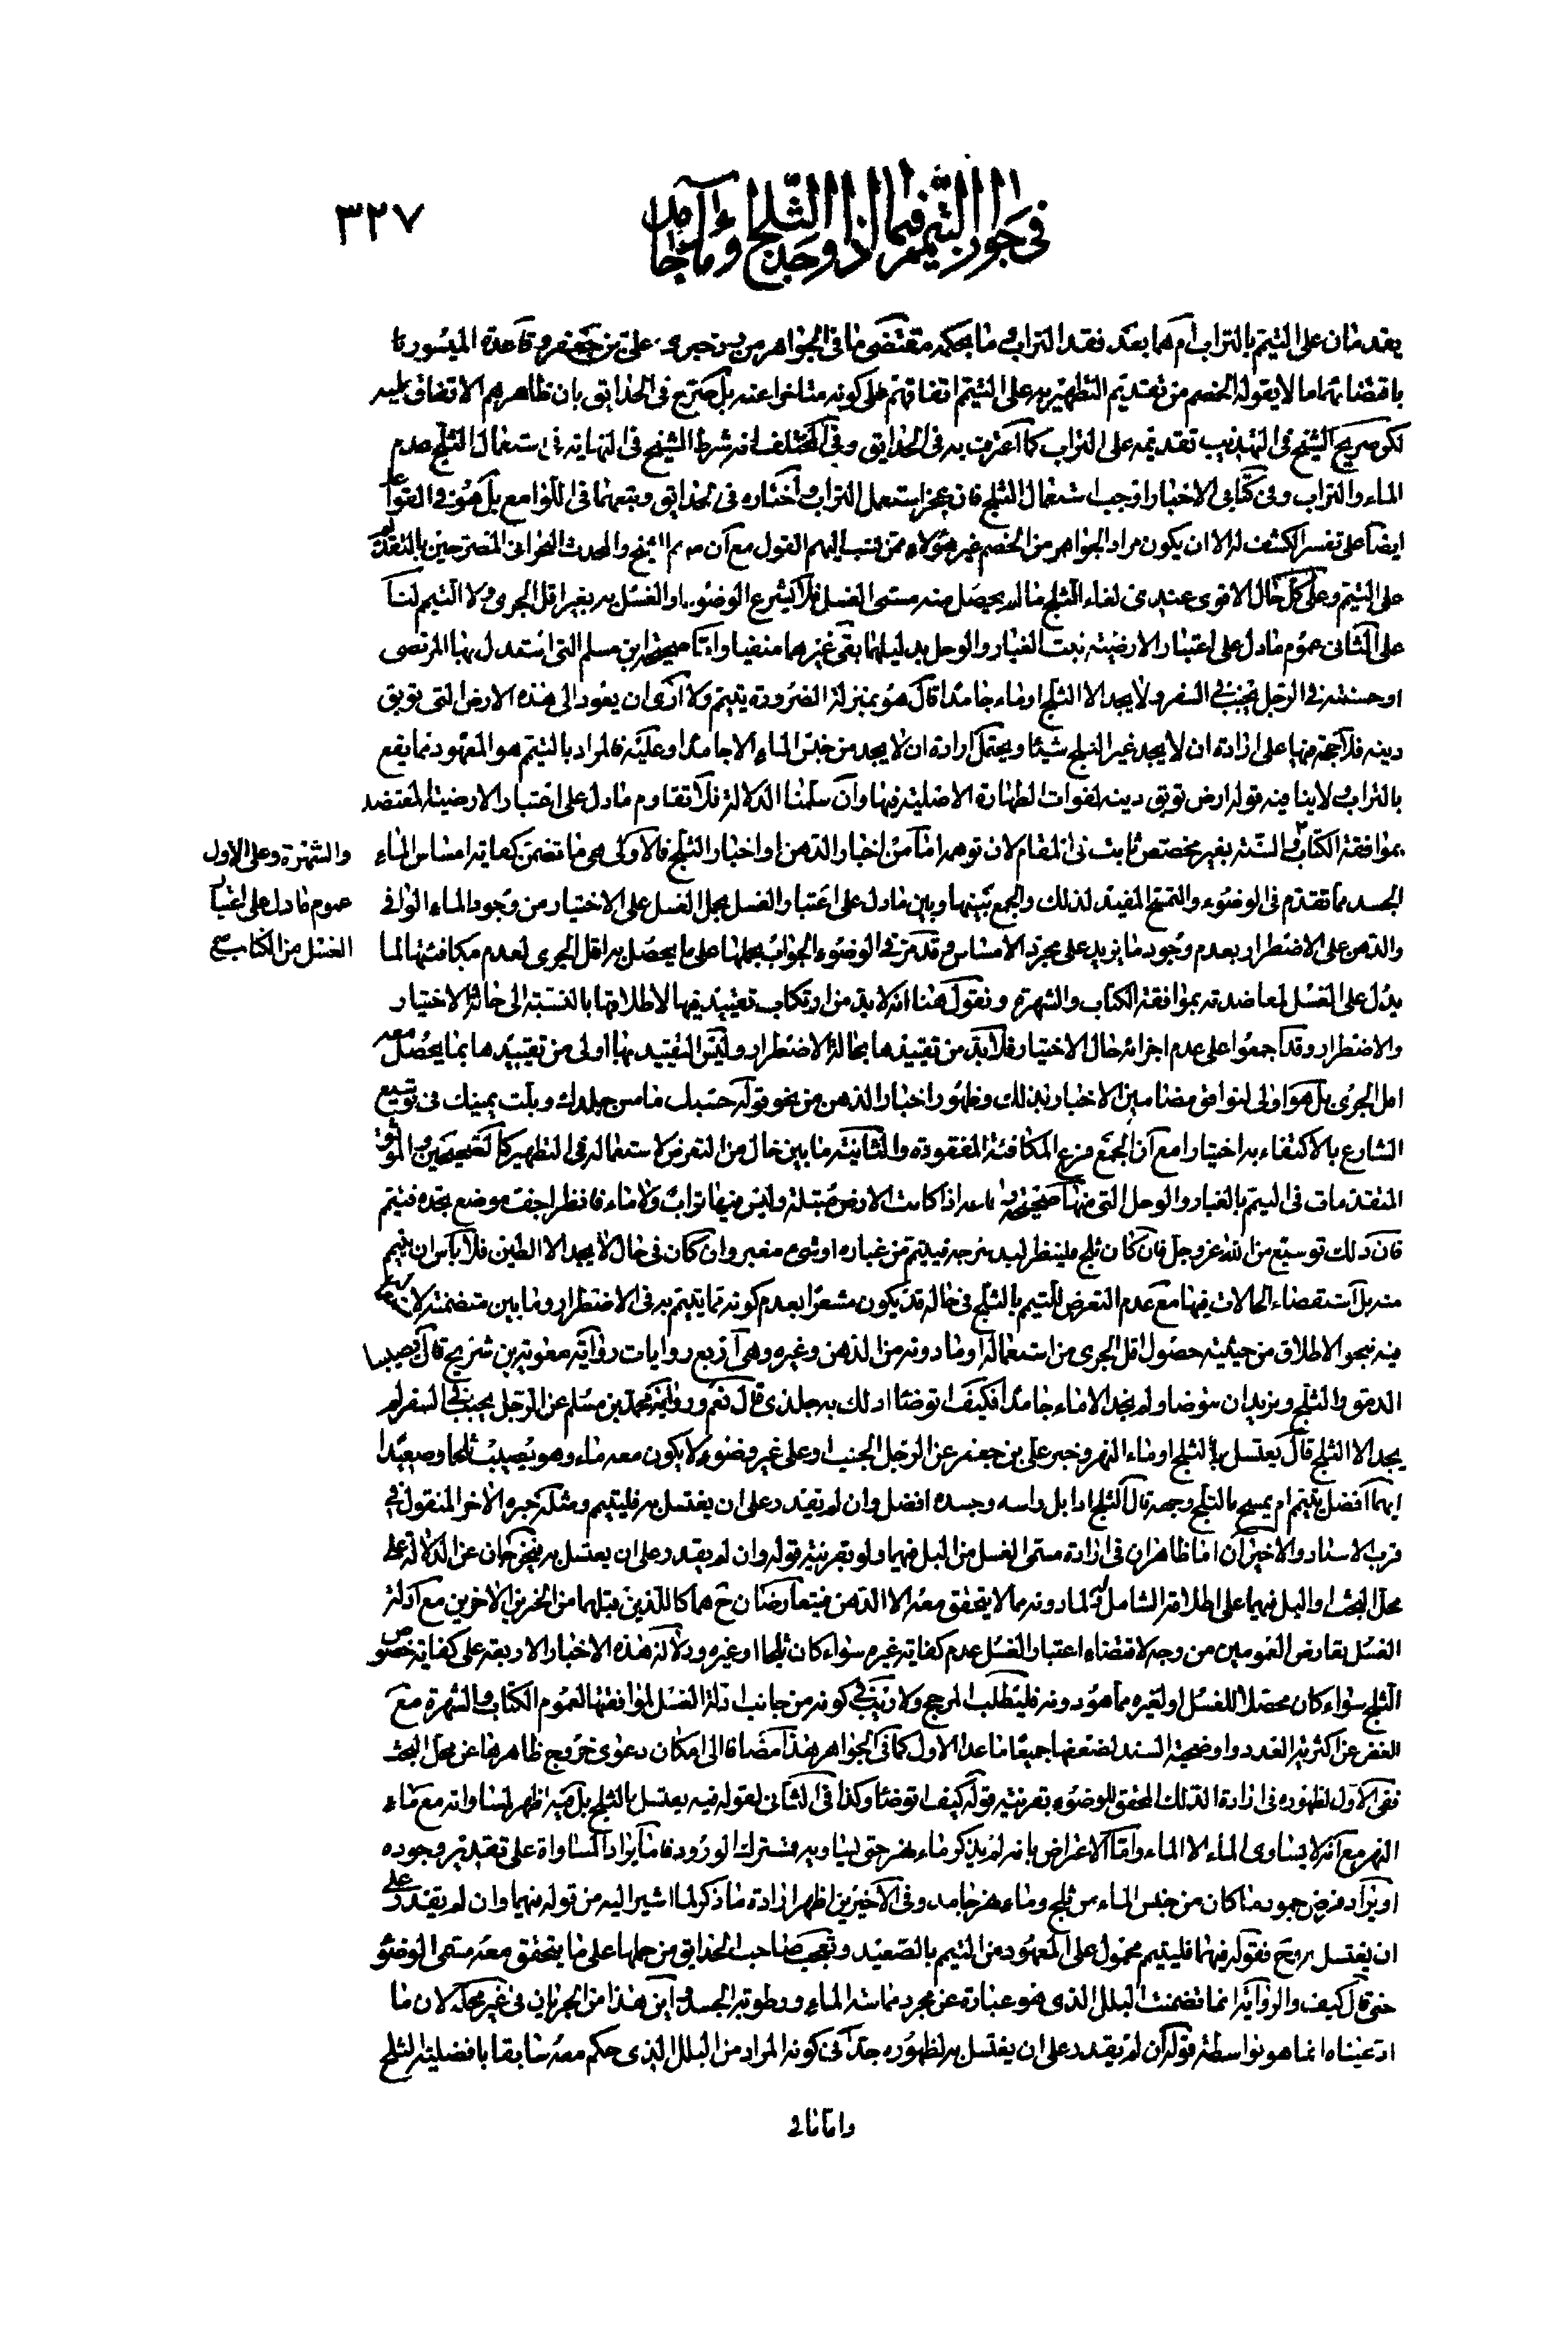 في جواز التيمم فيما اذا وجد الثلج او ماء جامدا
٣٢٧
يقدمان على التيمم بالتراب ام هما بعد فقد التراب وما يحكيه مقتضى ما في الجواهر من خبري علي بن جعفر وقاعدة الميسور
باقتضائهما ما لا يقوله الخصم من تقديم التطهير به على التيمم اتفاقهم على كونه متاخرا عنه بل صرح في الحدايق بان ظاهرهم الاتفاق عليه
لكن صريح الشيخ في التهذيب تقديمه على التراب كما اعترف به في الحدايق وفي المختلف انه شرط الشيخ في النهاية في استعمال الثلج عدم
الماء والتراب وفي كتابي الاخبار اوجب استعمال الثلج فان عجز استعمل التراب واختاره في الحدايق وتبعهما في اللوامع بل هو في القواعد
ايضا على تفسير الكشف له الا ان يكون مراد الجواهر من الخصم غير هؤلاء ممن نسب اليهم القول مع ان منهم الشيخ والمحدث البحراني المصرحين بالتقدم
على التيمم وعلى كل حال الاقوى عندي الغاء الثلج ما لم يحصل منه مسمى الغسل فلا يشرع الوضوء او الغسل به بغير اقل الجري ولا التيمم لنا
على الثاني عموم ما دل على اعتبار الارضية ثبت الغبار والوحل بدليلهما بقي غيرهما منفيا واما صحيحة ابن مسلم التي استدل بها المرتضى
او حسنته في الرجل يجنب في السفر ولا يجد الا الثلج او ماء جامدا قال هو بمنزلة الضرورة يتيمم ولا ارى ان يعود الى هذه الارض التي توبق
دينه فلا حجة فيها على ارادة ان لا يجد غير الثلج شيئا ويحتمل ارادة ان لا يجد من جنس الماء الا جامدا وعليه فالمراد بالتيمم هو المعهود فما يقع
بالتراب ولا ينافيه قوله ارض توبق دينه لفوات الطهارة الاصلية فيها وان سلمنا الدلالة فلا تقاوم ما دل على اعتبار الارضية المعتضد
بموافقة الكتاب والسنة بغير مخصص ثابت في المقام لان توهمه اما من اخبار الدهن او اخبار الثلج فالاولى هي ما تضمن كفاية امساس الماء
والشهرة وعلى الاول
عموم ما دل على اعتبار
الغسل من الكتاب صح
الجسد مما تقدم في الوضوء والتمسح المفيد لذلك والجمع بينها وبين ما دل على اعتبار الغسل بحمل الغسل على الاختيار من وجود الماء الوافي
والدهن على الاضطرار بعدم وجود ما يزيد على مجرد الامساس وقد مر في الوضوء الجواب بحملها على ما يحصل به اقل الجري لعدم مكافئتها لما
يدل على الغسل لمعاضدته بموافقة الكتاب والشهرة ونقول هنا انه لا بد من ارتكاب تقييد فيها لاطلاقها بالنسبة الى حالة الاختيار
والاضطرار وقد اجمعوا على عدم اجزائه حال الاختيار فلا بد من تقييدها بحالة الاضطرار وليس التقييد بها اولى من تقييدها بما يحصل معه
اقل الجري بل هو اولى لتوافق مضامين الاخبار بذلك وظهور اخبار الدهن من نحو قوله حسبك ما مس جلدك وبلت يمينك في توسيع
الشارع بالاكتفاء به اختيارا مع ان الجمع فرع المكافئة المفقودة والثانية ما بين خال من التعرض لاستعماله في التطهير كالصحيحين والموثق
المتقدمات في التيمم بالغبار والوحل التي منها صحيحة رفاعة اذا كانت الارض مبتلة وليس فيها تراب ولا ماء فانظر اجف موضع تجده فتيمم
فان ذلك توسيع من الله عز وجل فان كان ثلج فلينظر لبد سرجه فيتيمم من غباره او شيء مغبر وان كان في حال لا يجد الا الطين فلا باس ان يتيمم
منه بل استقصاء الحالات فيها مع عدم التعرض للتيمم بالثلج في حاله قد يكون مشعرا بعدم كونه مما يتيمم به في الاضطرار وما بين متضمنة
فيه نحو الاطلاق من حيثية حصول اقل الجري من استعماله او ما دونه من الدهن وغيره وهي اربع روايات رواية معوية بن شريح قال يصيبنا
الدمق والثلج ونريد ان نتوضا ولم نجد الا ماء جامدا فكيف اتوضا ادلك به جلدي قال نعم ورواية محمد بن مسلم عن الرجل يجنب في السفر لم
يجد الا الثلج قال يغتسل بالثلج او ماء النهر وخبر علي بن جعفر عن الرجل الجنب او على غير وضوء لا يكون معه ماء وهو يصيب ثلجا وصعيدا
ايهما افضل يتيمم ام يمسح بالثلج وجهه قال الثلج اذا بل راسه وجسده افضل وان لم يقدر على ان يغتسل به فليتيمم ومثله خبره الاخر المنقول في
قرب الاسناد والاخيران اما ظاهران في ارادة مسمى الغسل من البل فيهما ولو بقرينة قوله وان لم يقدر على ان يغتسل به فيخرجان عن الدلالة على
محل البحث او البل فيهما على اطلاقه الشامل لما دونه مما لا يتحقق معه الا الدهن فيتعارضان ح هما كاللذين قبلهما من الخبرين الاخرين مع ادلة
الغسل تعارض العمومين من وجه لاقتضاء اعتبار الغسل عدم كفاية غيره سواء كان ثلجا او غيره ودلالة هذه الاخبار الاربعة على كفاية خصوص
الثلج سواء كان محصلا للغسل او لغيره مما هو دونه فليطلب المرجح ولا ريب في كونه من جانب ادلة الغسل لموافقتها لعموم الكتاب والشهرة مع
الغض عن اكثرية العدد واوضحية السند لضعفها جميعا ما عدا الاول كما في الجواهر هذا مضافا الى امكان دعوى خروج ظاهرها عن محل البحث
ففي الاول لظهوره في ارادة الدلك المحقق للوضوء بقرينة قوله كيف اتوضا وكذا في الثاني لقوله فيه يغتسل بالثلج بل فيه اظهر لمساواته مع ماء
النهر مع انه لا يساوي الماء الا الماء واما الاعتراض بانه لم يذكر ماء نهر حتى يساويه فمشترك الورود فاما يراد المساواة على تقدير وجوده
او يراد فرض جمود ما كان من جنس الماء من ثلج وماء نهر جامد وفي الاخيرين اظهر ارادة ما ذكر لما اشير اليه من قوله فيهما وان لم يقدر على
ان يغتسل به وح فقوله فيهما فليتيمم محمول على المعهود من التيمم بالصعيد وتعجب صاحب الحدايق من حملها على ما يتحقق معه مسمى الوضوء
حتى قال كيف والرواية انما تضمنت البلل الذي هو عبارة عن مجرد مماسة الماء ورطوبة الجسد واين هذا من الجريان في غير محله لان ما
ادعيناه انما هو بواسطة قوله ان لم يقدر على ان يغتسل به لظهوره جدا في كونه المراد من البلل الذي حكم معه سابقا بافضلية الثلج
واما ما في